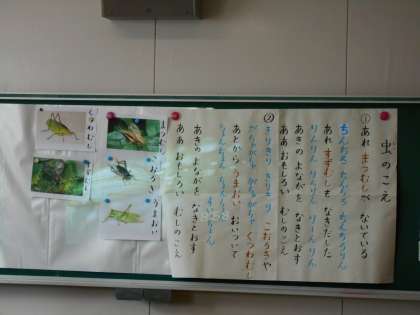 虫のこえ
① あれ まつむしが ないている
ちんちろ ちんちろ ちんちろりん
あれ すずむしも なきだした
りんりん りんりん りーんりん
あきの よながを なきとおす
ああ おもしろい むしのこえ
② きりきり きりきり こおろぎや
がちゃがちゃ がちゃがちゃ くつわむし
あとから うまおい おいついて
ちょんちょん ちょんちょん すいっちょん
あきの よながを なきとおす
ああ おもしろい むしのこえ
まつむし
こおろぎ
うまおい
くつわむし